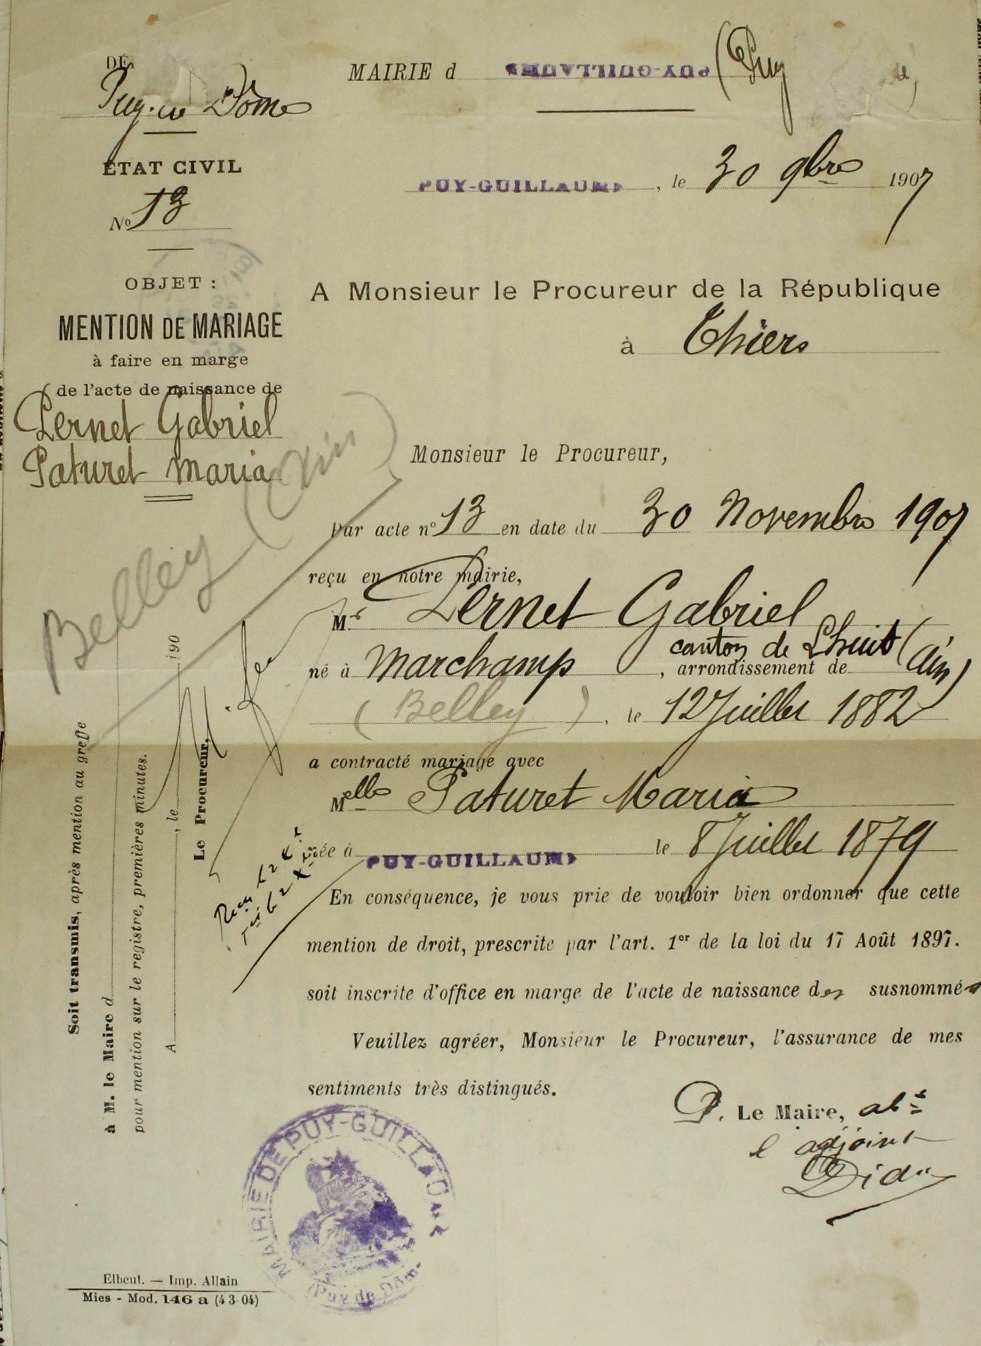 DE
Puy-de-Dôme
ÉTAT CIVIL
No 13
OBJET :
MENTION DE MARIAGE
à faire en marge
de l'acte de naissance de
Pernet Gabriel
Paturet Maria
MAIRIE d PUY-GUILLAUME (Puy
PUY-GUILLAUME, le 30 9bre 1907
A Monsieur le Procureur de la République
à Thiers
Monsieur le Procureur,
Par acte no 13 en date du 30 Novembre 1907
reçu en notre mairie,
Mr Pernet Gabriel
né à Marchamp, canton de Lhuis (Ain)
arrondissement de
(Belley), le 12 Juillet 1882
a contracté mariage avec
Melle Paturet Maria
née à PUY-GUILLAUME le 8 Juillet 1879
En conséquence, je vous prie de vouloir bien ordonner que cette
mention de droit, prescrite par l'art. 1er de la loi du 17 Août 1897.
soit inscrite d'office en marge de l'acte de naissance des susnommés
Veuillez agréer, Monsieur le Procureur, l'assurance de mes
sentiments très distingués.
P. Le Maire, abt
l'adjoint
Belley (Ain)
Soit transmis, après mention au greffe
à M. le Maire d
pour mention sur le registre, premières minutes.
A, le 190
Le Procureur,
MAIRIE DE PUY-GUILLAUME
(Puy de Dôme)
Elbeuf. — Imp. Allain
Mies - Mod. 146 a (4 3-04)